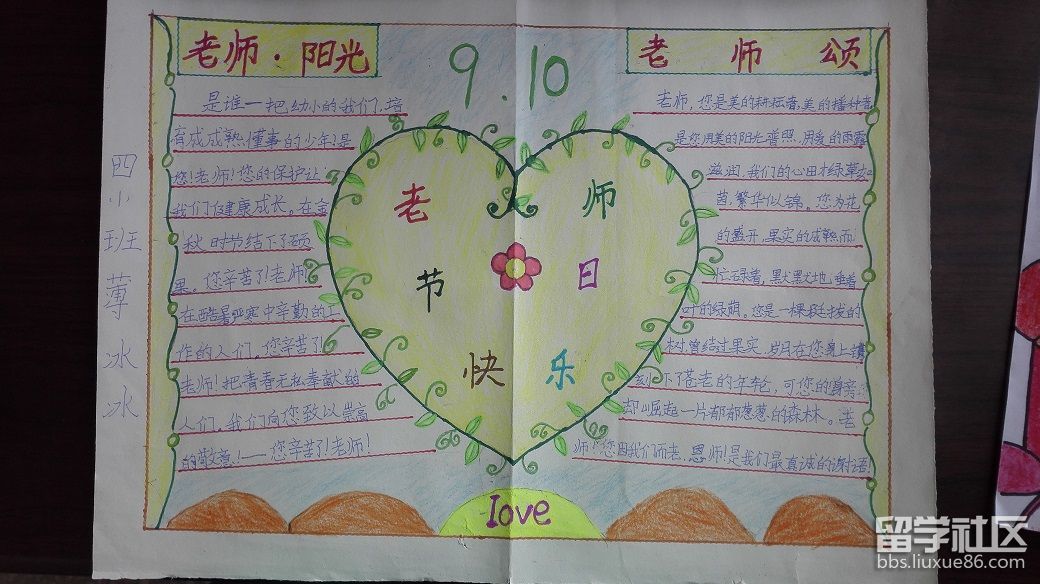 老师·阳光
是谁一把幼小的我们,培
育成成熟懂事的少年!是
您!老师!您的保护让
我们健康成长。在金
秋时节结下了硕
果。您辛苦了!老师!
在酷暑严寒中辛勤的工
作的人们。您辛苦了!
老师!把青春无私奉献给
人们。我们向您致以崇高
的敬意!——您辛苦了!老师!
四小班薄冰冰
9.10
老师
节日
快乐
love
老师颂
老师,您是美的耕耘者,美的播种者
是您用美的阳光普照,用爱的雨露
滋润,我们的心田才绿草如
茵,繁华似锦。您为花
的盛开,果实的成熟而
忙碌着,默默默地垂着
叶的绿荫。您是一棵挺拔的
树曾结过果实,岁月在您身上镌
刻下了苍老的年轮,可您的身旁
却崛起一片郁郁葱葱的森林。老
师!您因我们而老,恩师!是我们最真诚的谢语!
留学社区
bbs.liuxue86.com